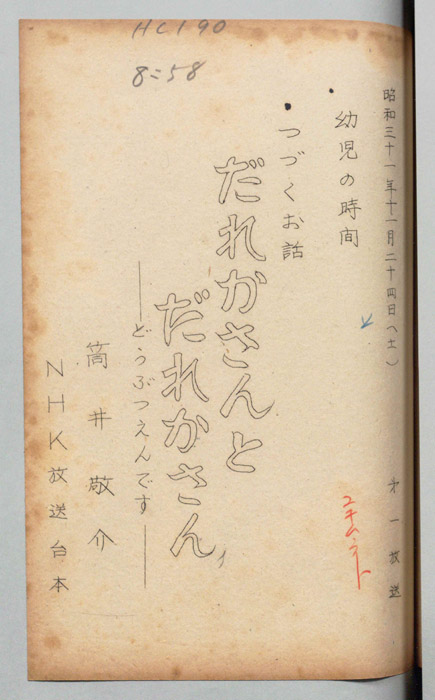 HC190
8=58
昭和三十一年十一月二十四日(土)
第一放送
幼児の時間
つづくお話
だれかさんと
だれかさん
――どうぶつえんです――
筒井敬介
NHK放送台本